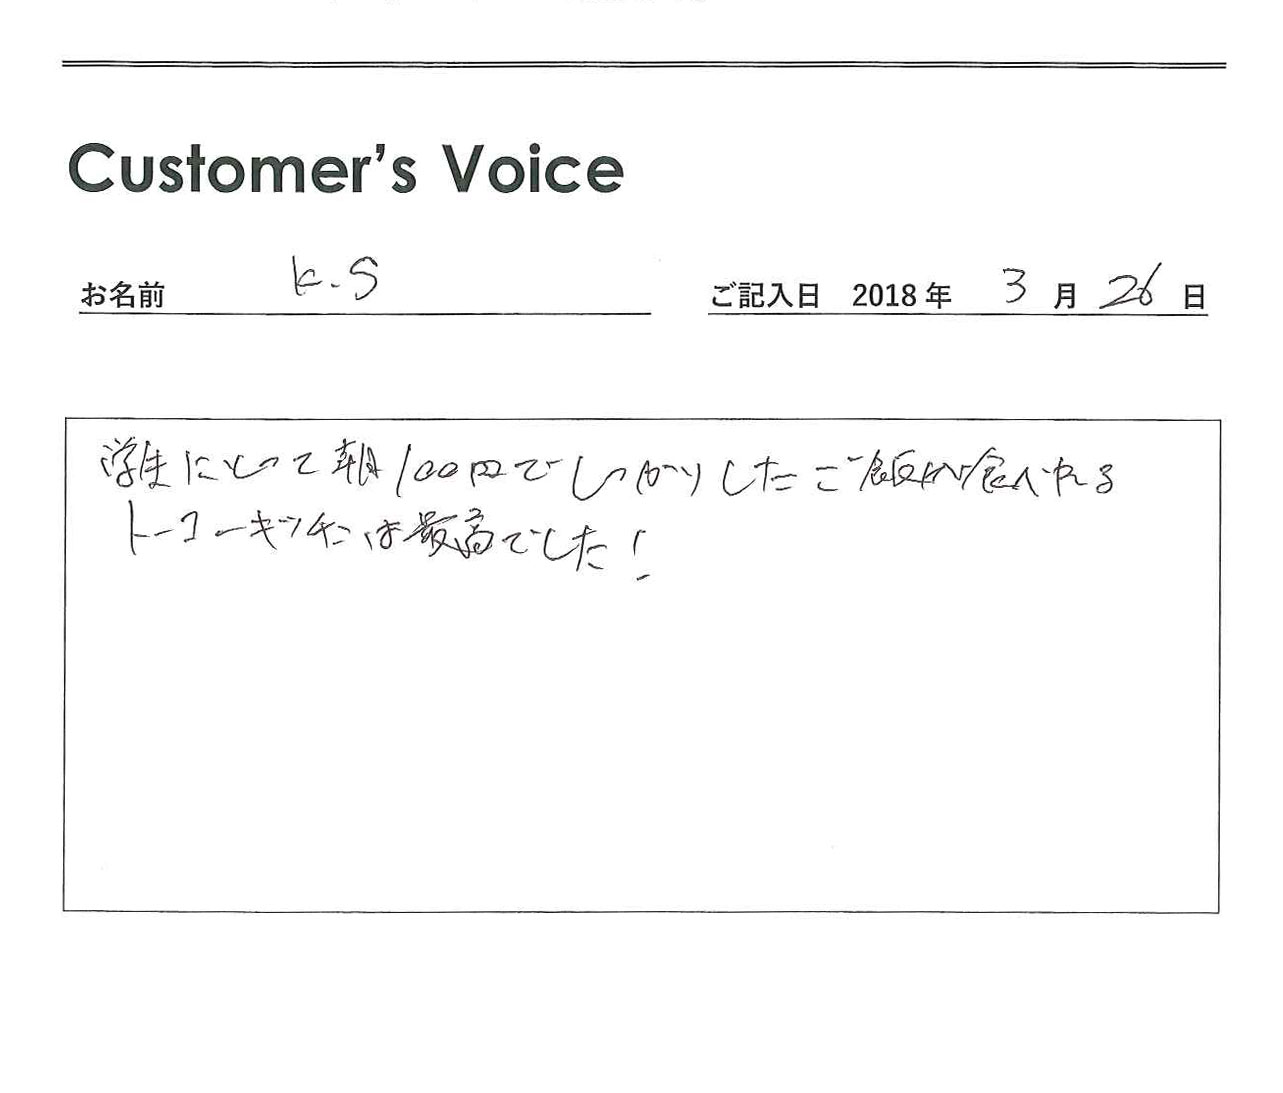 Customer's Voice
お名前 K.S
ご記入日 2018年 3月26日
学生にとって朝100円でしっかりしたご飯が食べれる
トーコーキッチンは最高でした!